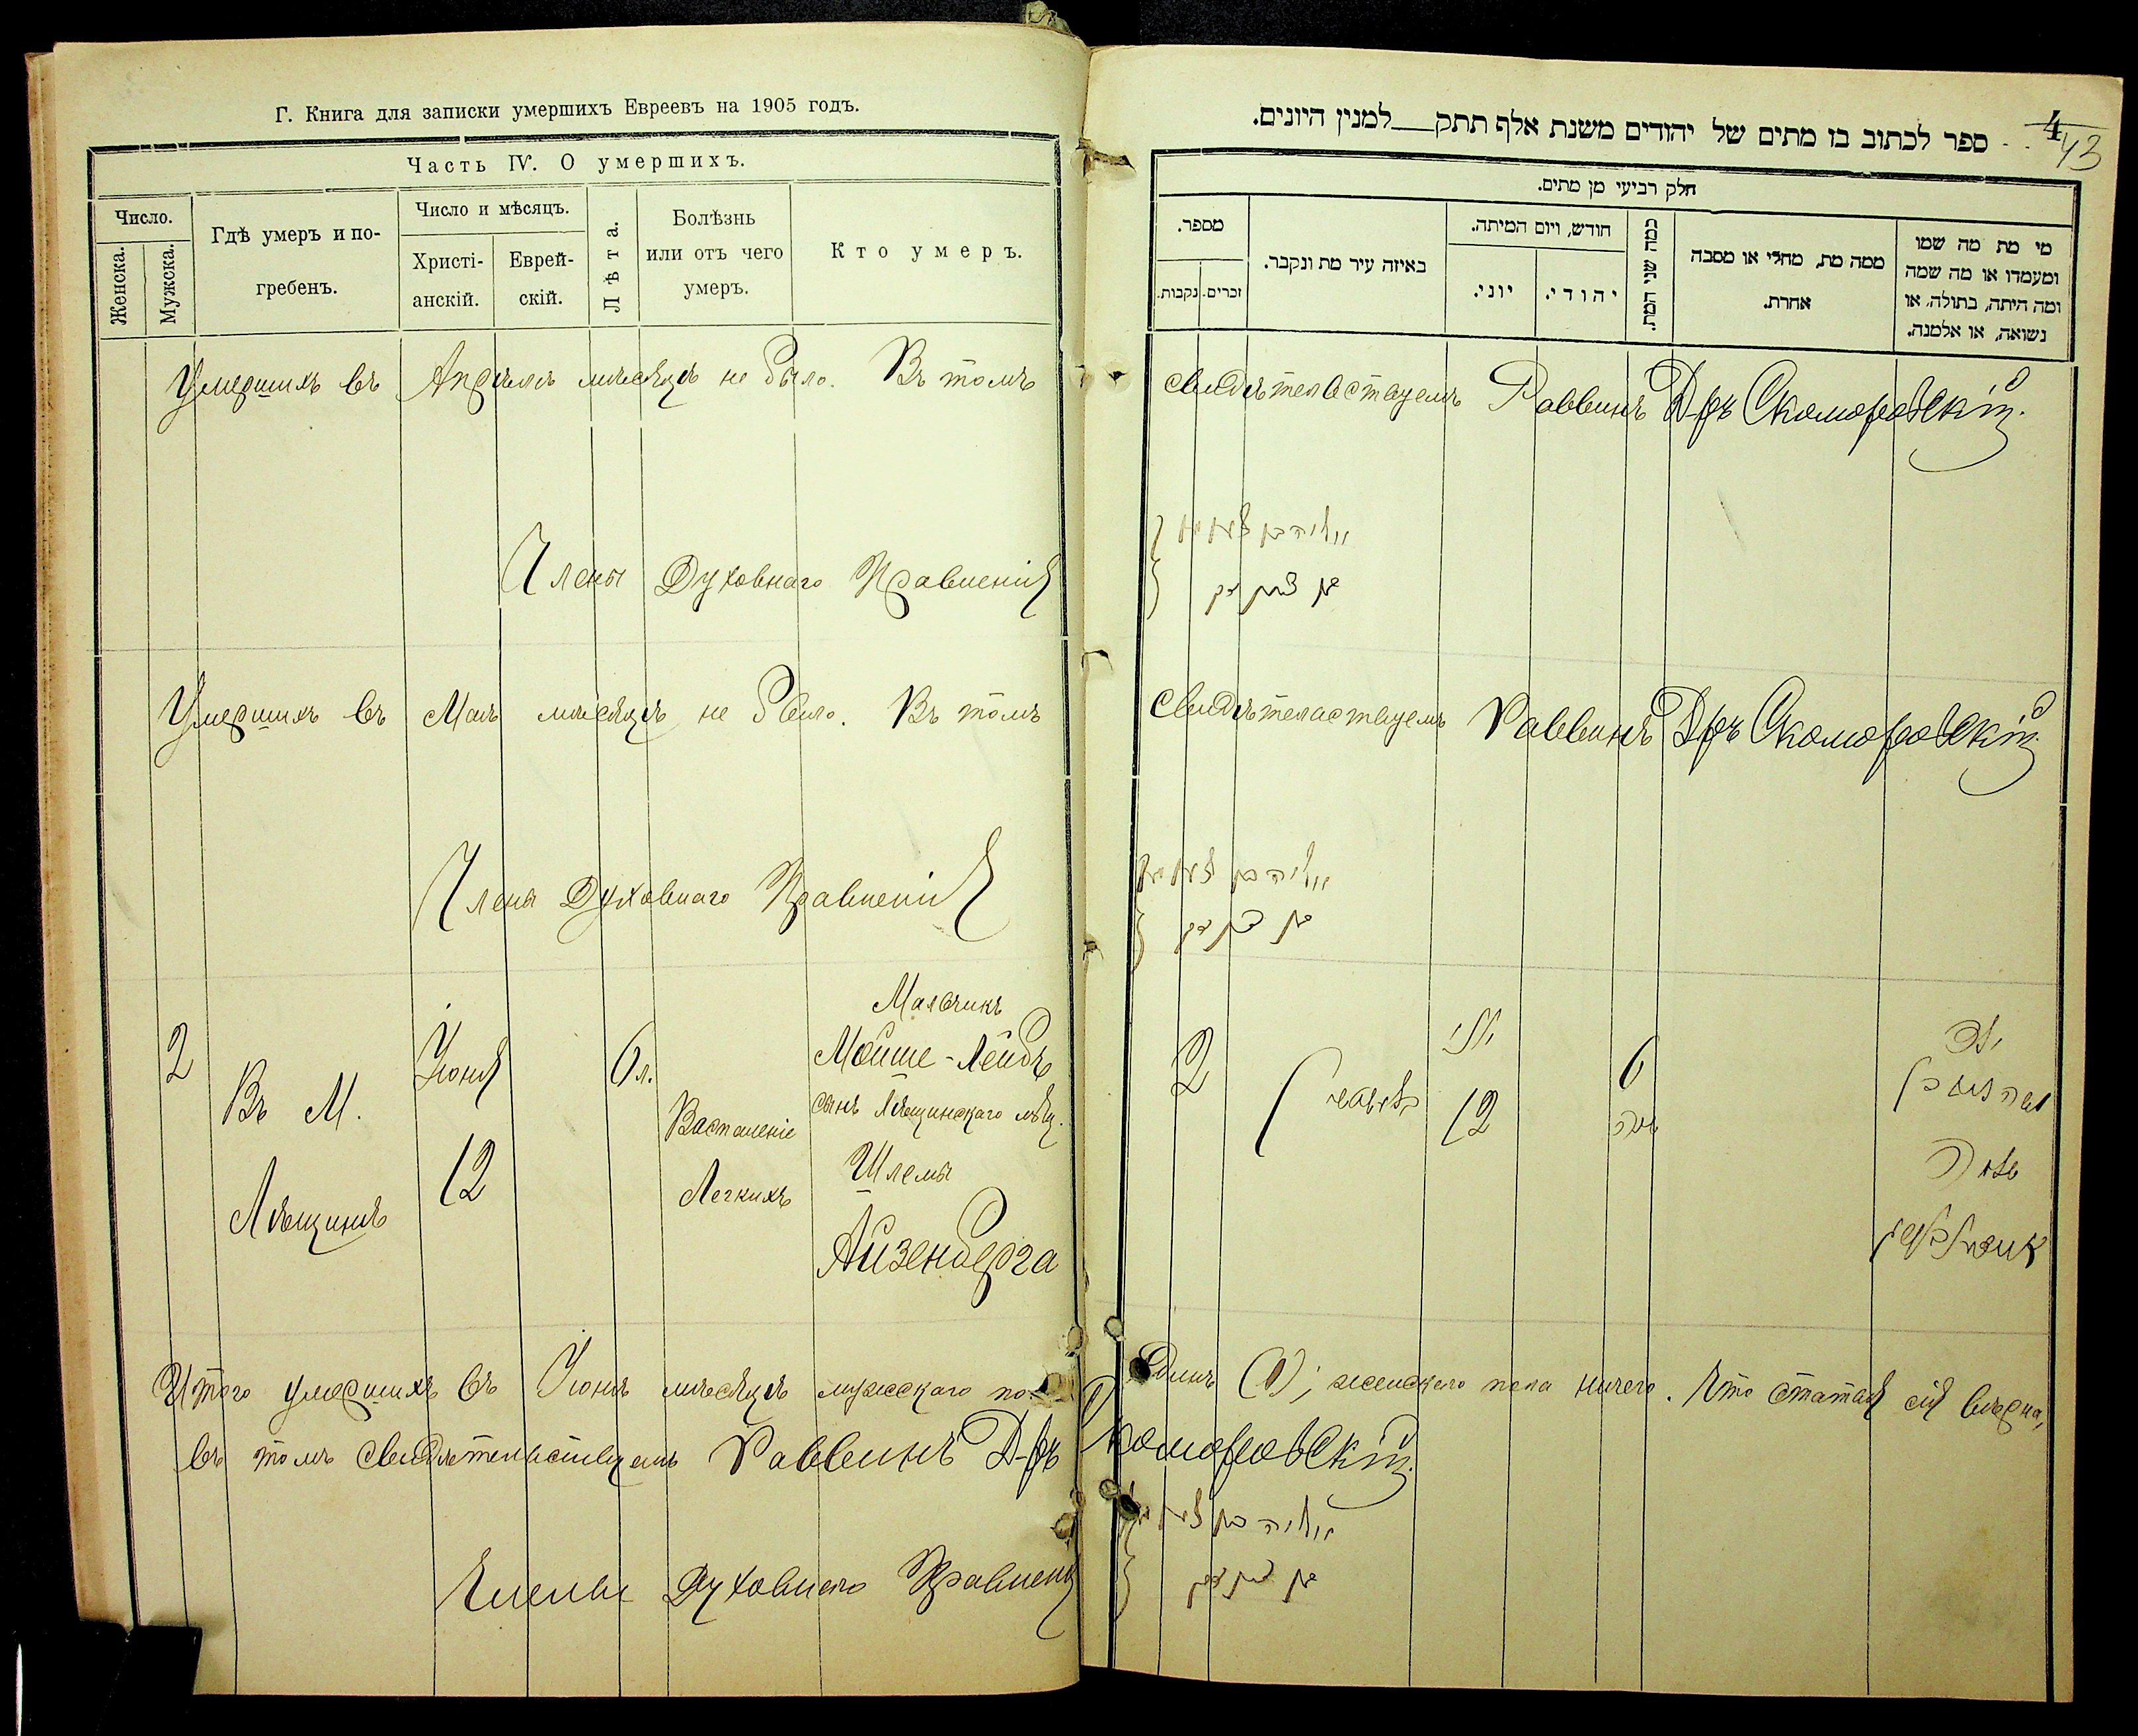 Г. Книга для записки умершихъ Евреевъ на 1905 годъ.
Часть IV. О умершихъ.
Число.
Женска.
Мужска.
Гдѣ умеръ и по-
гребенъ.
Число и мѣсяцъ.
Христі-
анскій.
Еврей-
скій.
Лѣта.
Болѣзнь
или отъ чего
умеръ.
Кто умеръ.
Умершихъ въ Апрѣлѣ мѣсяцѣ не было. Въ томъ
Члены Духовнаго Правленія
Умершихъ въ Маѣ мѣсяцѣ не было. Въ томъ
Члены Духовнаго Правленія
2
Въ М.
Лѣщинѣ
Іюня
12
6 л.
Воспаленіе
Легкихъ
Мальчикъ
Мойше-Лейбъ
сынъ Лѣщинскаго мѣщ.
Шлемы
Айзенберга
Итого умершихъ въ Іюнѣ мѣсяцѣ мужскаго по
въ томъ свидѣтельствуемъ Раввинъ Д-ръ
Члены Духовнаго Правленія
4
43
ספר לכתוב בו מתים של יהודים משנת אלף תתק__למנין היונים.
חלק רביעי מן מתים.
מספר.
זכרים.
נקבות.
באיזה עיר מת ונקבר.
חודש, ויום המיתה.
יוני.
יהודי.
כמה שני המת.
ממה מת, מחלי או מסבה
אחרת.
מי מת מה שמו
ומעמדו או מה שמה
ומה היתה, בתולה, או
נשואה, או אלמנה.
свидѣтельствуемъ Раввинъ Д-ръ Скоморовскій.
свидѣтельствуемъ Раввинъ Д-ръ Скоморовскій.
2
יוני
12
6
שנה
ילד
משה
שלמה
אייזענבערג
Одинъ (1); женскаго пола ничего. Что статья сія вѣрна,
Скоморовскій.